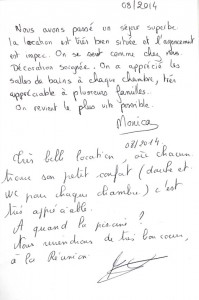 08/2014
Nous avons passé un séjour superbe
la location est très bien située et l'agencement
est impec. On se sent comme chez nous
Décoration soignée. On a apprécié les
salles de bains à chaque chambre, très
appréciable à plusieurs familles.
On revient le plus vite possible.
Monica
08/2014
Très belle location, où chacun
trouve son petit confort (douche et
WC pour chaque chambre) c'est
très appréciable.
A quand la piscine ?
Nous reviendrons de très bon coeur,
à la Réunion.